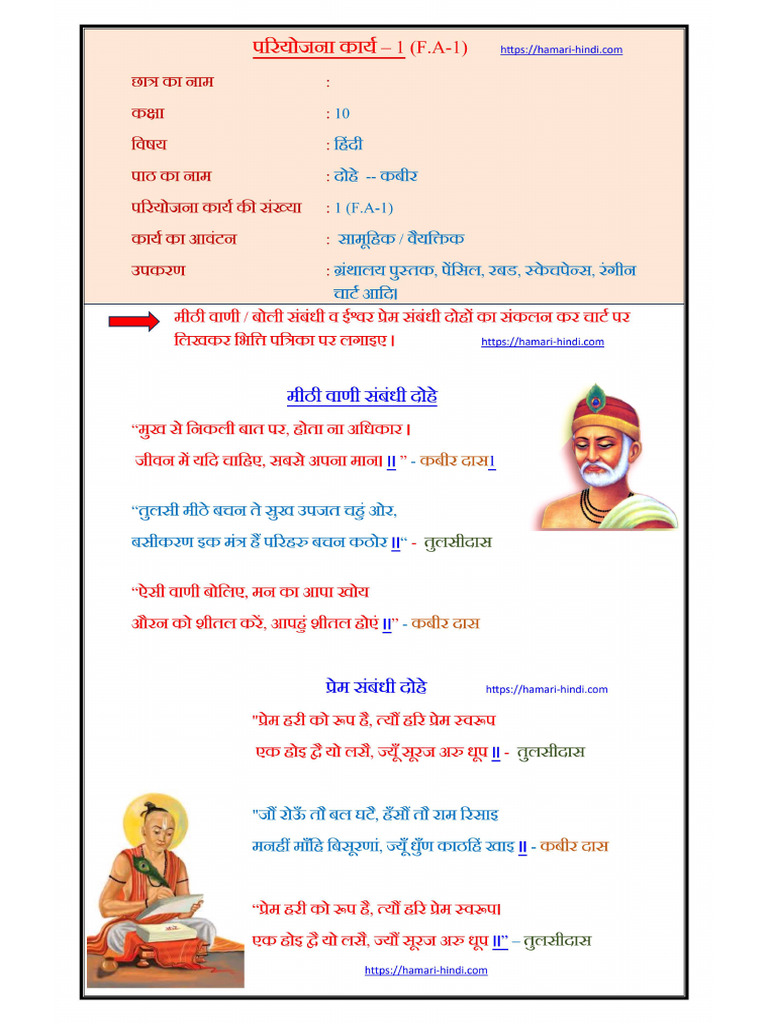 परियोजना कार्य – 1 (F.A-1) https://hamari-hindi.com
छात्र का नाम :
कक्षा : 10
विषय : हिंदी
पाठ का नाम : दोहे -- कबीर
परियोजना कार्य की संख्या : 1 (F.A-1)
कार्य का आवंटन : सामूहिक / वैयक्तिक
उपकरण : ग्रंथालय पुस्तक, पेंसिल, रबड, स्केचपेन्स, रंगीन
चार्ट आदि।
मीठी वाणी / बोली संबंधी व ईश्वर प्रेम संबंधी दोहों का संकलन कर चार्ट पर
लिखकर भित्ति पत्रिका पर लगाइए। https://hamari-hindi.com
मीठी वाणी संबंधी दोहे
“मुख से निकली बात पर, होता ना अधिकार।
जीवन में यदि चाहिए, सबसे अपना मान।॥ ” - कबीर दास1
“तुलसी मीठे बचन ते सुख उपजत चहुं ओर,
बसीकरण इक मंत्र हैं परिहरु बचन कठोर॥“ - तुलसीदास
“ऐसी वाणी बोलिए, मन का आपा खोय
औरन को शीतल करें, आपहुं शीतल होएं॥” - कबीर दास
प्रेम संबंधी दोहे https://hamari-hindi.com
"प्रेम हरी को रूप है, त्यौं हरि प्रेम स्वरूप
एक होइ द्वै यो लसै, ज्यूँ सूरज अरु धूप॥ - तुलसीदास
"जौं रोऊँ तौ बल घटै, हँसौं तौ राम रिसाइ
मनहीं माँहि बिसूरणां, ज्यूँ धुँण काठहिं खाइ॥ - कबीर दास
“प्रेम हरी को रूप है, त्यौं हरि प्रेम स्वरूप।
एक होइ द्वै यो लसै, ज्यौं सूरज अरु धूप॥” – तुलसीदास
https://hamari-hindi.com